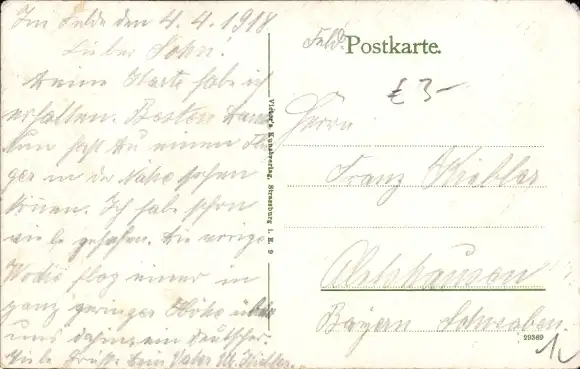 Im Felde den 4.4.1918
Lieber Sohn!
Deine Karte habe ich
erhalten. Besten Dank
nun hast du einen Flie
ger in der Nähe sehen
können. Ich habe schon
viele gesehen. Die vorige
Woche flog einer in
ganz geringer Höhe über
uns dahin, ein Deutscher.
Viele Grüße Dein Vater M.
Feld Postkarte.
€ 3-
Herrn
Franz
Bayern Schwaben.
29369
Victor's Kunstverlag, Strassburg i. E. 9